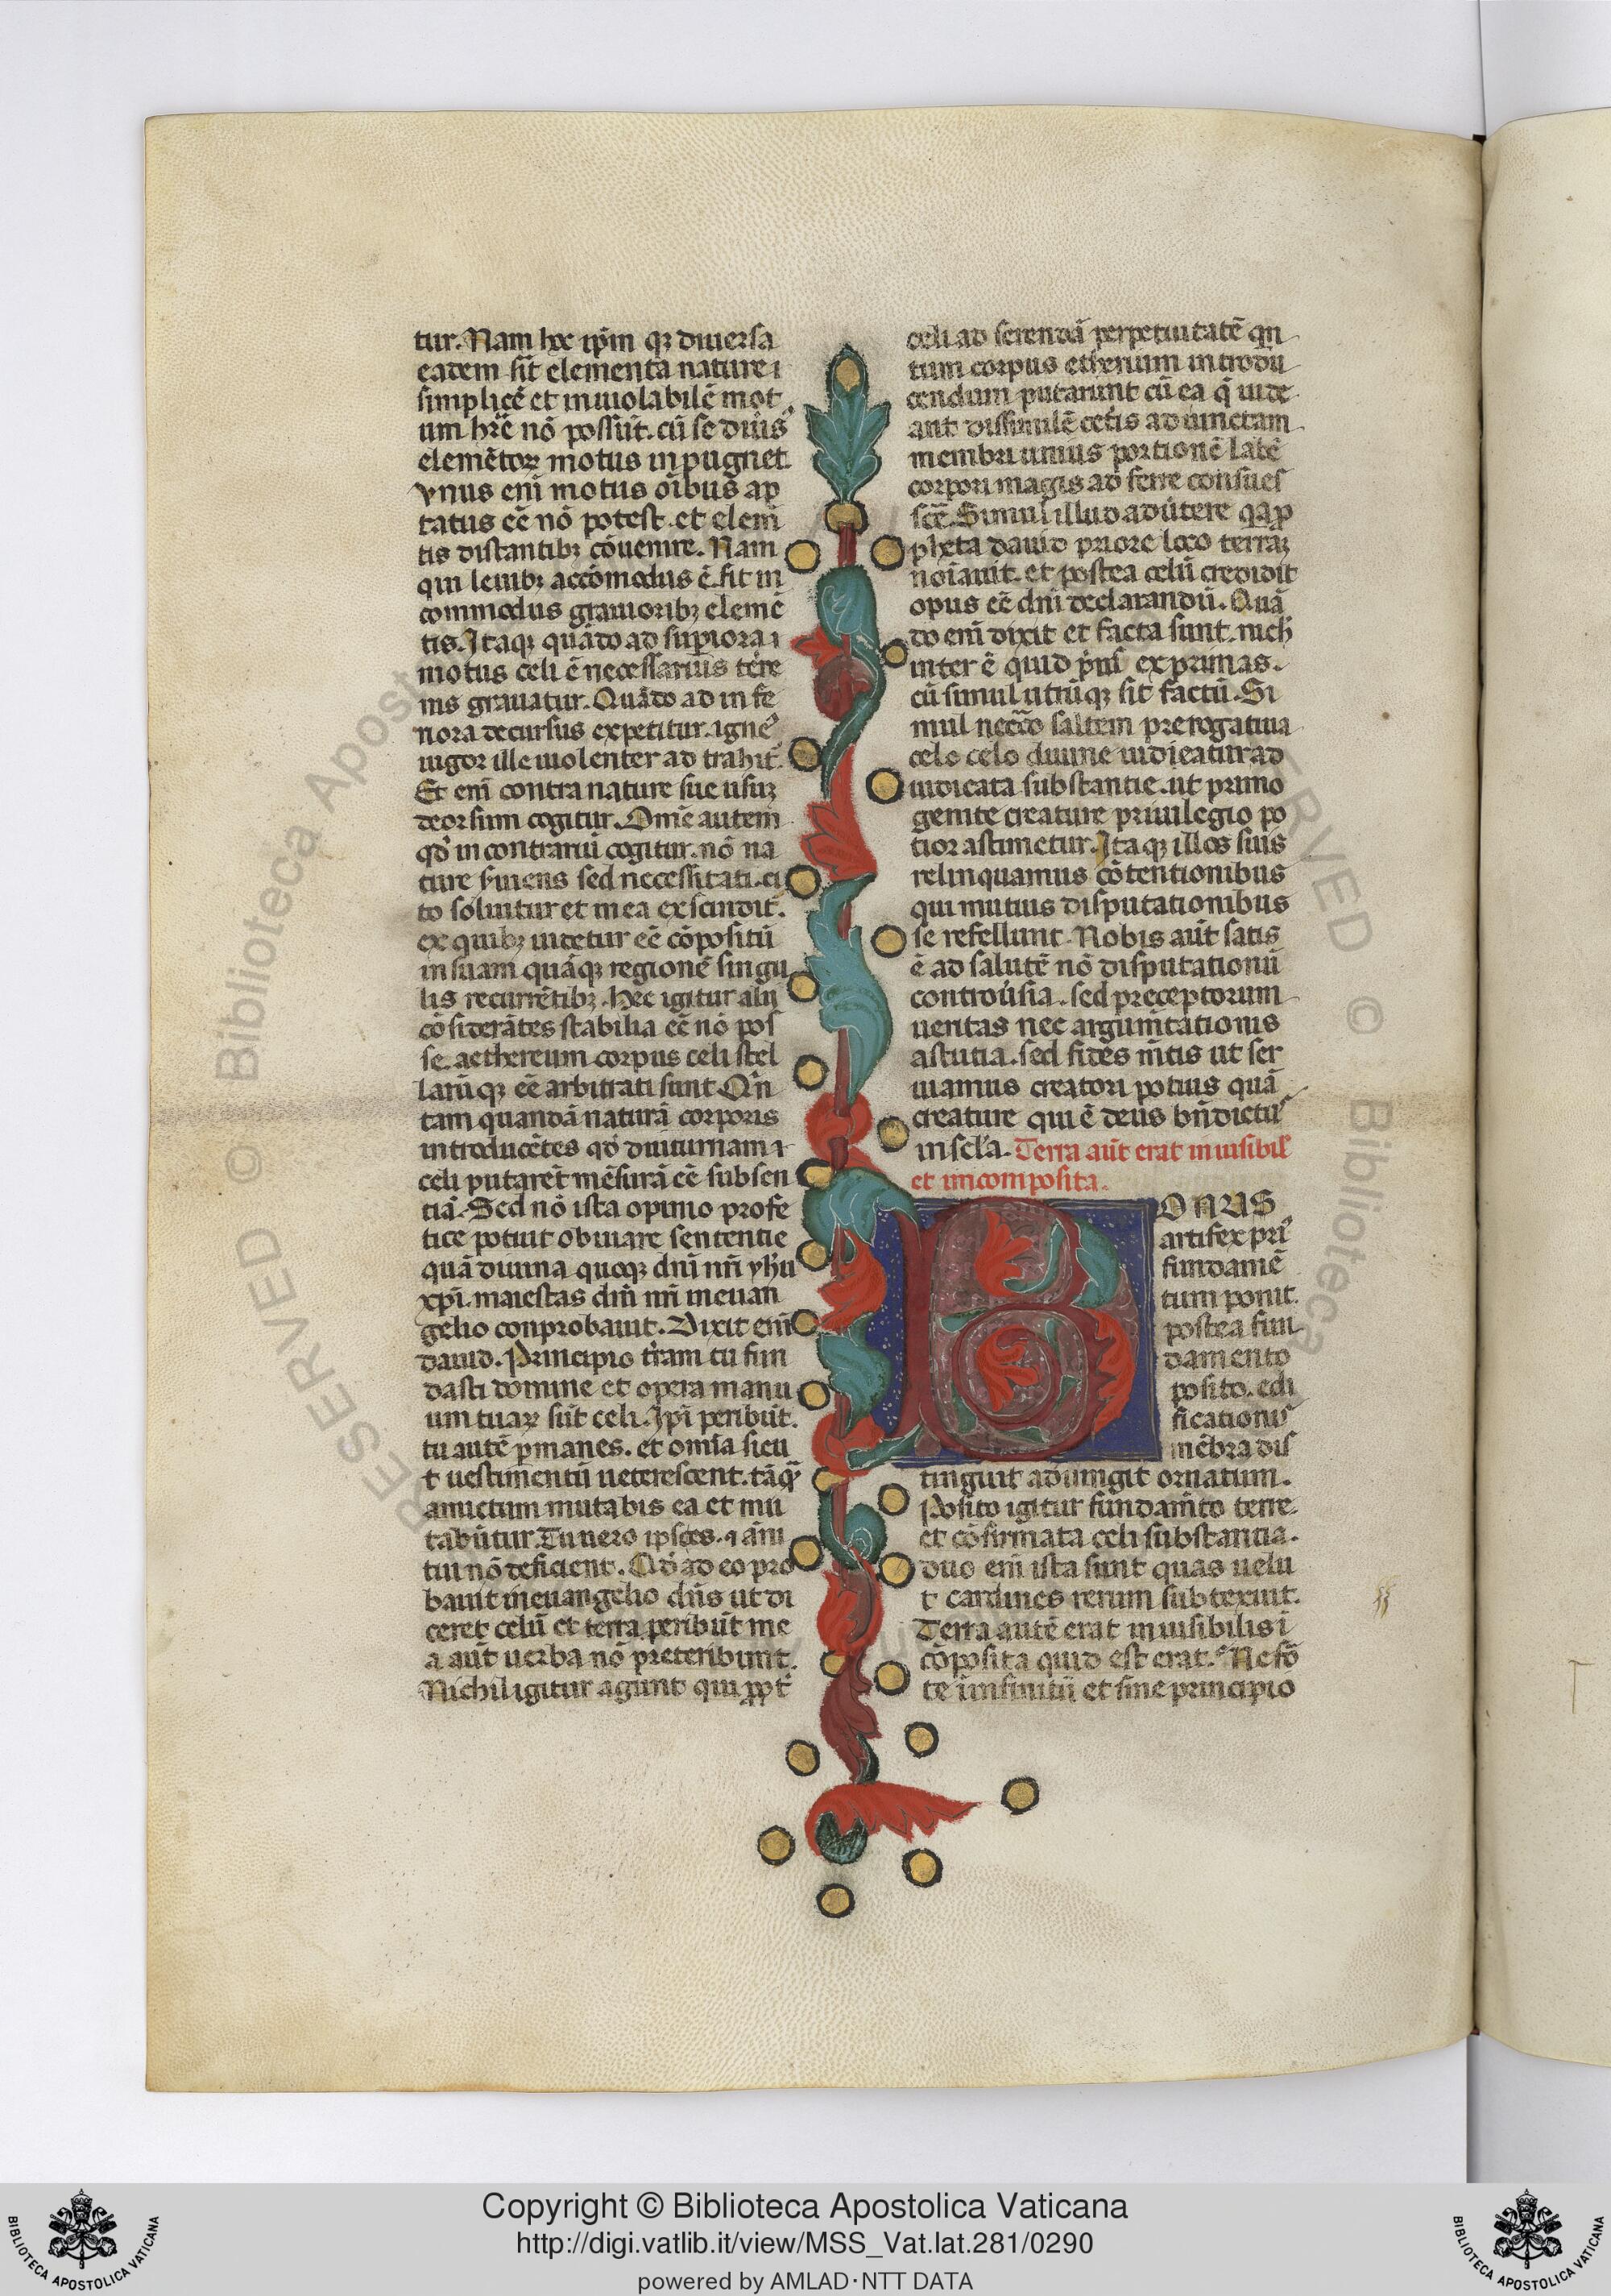 tur. Nam hoc ip̄m qꝫ diuersa
eadem sīt elementa nature ⁊
simplicē et inuiolabilē mot
um hr̄e nō possūt. cū se diu͛s
elemētoꝝ motus inpugnet.
vnus enī motus oībus ap
tatus eē nō potest. et elem̄
tis distantibꝫ cōuenire. Nam
qui leuibꝫ accōmodus ē. fit in
commodus grauioribꝫ elemē
tis. Itaqꝫ quādo ad sup̄iora ⁊
motus celi ē necessarius terre
nis grauatur. Quādo ad infe
riora decursus expetitur. igne͛
uigor ille uiolenter ad trahit͛.
Et enī contra nature sue usuꝫ
deorsum cogitur. Om̄e autem
qd̓ in contrariū cogitur. nō na
ture s͛uiens sed necessitati. ci
to soluitur et in ea exscindit͛.
ex quibꝫ uidetur eē cōpositū
in suam quāqꝫ regionē singu
lis recurrētibꝫ. Hec igitur alij
cōsiderātes stabilia eē nō pos
se. aethereum corpus celi stel
larūqꝫ eē arbitrati sunt. Qn̄
tam quandā naturā corporis
introducētes qd̓ diuturnam ⁊
celi putarēt mēsurā eē subsen
tiā. Sed nō ista opinio profe
tice potuit obuiare sententie
quā diuina quoqꝫ dn̄i nr̄i yh̄u
xp̄i. maiestas dn̄i nr̄i in euan
gelio conprobauit. Dixit enī
dauid. Principio tr̄am tu fun
dasti domine et opera manu
um tuaꝝ sūt celi. Ipī peribūt.
tu autē ꝑmanes. et omīa sicu
t uestimentū ueterescent. tāqꝫ̄
amictum mutabis ea et mu
tabūtur. Tu uero ipse es. ⁊ āni
tui nō deficient. Qd̓ ad eo pro
bauit in euangelio dn̄s ut di
ceret celū et terra peribūt me
a aūt uerba nō preteribunt.
Nichil igitur agunt qui ꝓpt͛
celi ad serendā perpetuitatē qn̄
tum corpus etherium introdu
cendum putarunt cū ea q̄ uide
ant dissimilē cet͛is ad iunctam
membri unius portionē labē
corpori magis ad ferre consues
scē͛. Simul illud adūtere qꝫ ꝓ
pheta dauid priore loco terraꝫ
noīauit. et postea celū credidit
opus eē dn̄i declarandū. Quā
do enī dixit et facta sunt. nich̓
inter ē quid p̄us̄ exprimas.
cū simul utrūqꝫ sit factū. Si
mul ne saltem prerogatiua
celo celo diuine uidieatur ad
iudicata substantie. ut primo
genite creature priuilegio po
tior astimetur. Itaqꝫ illos suis
relinquamus cōtentionibus
qui mutuis disputationibus
se refellunt. Nobis aūt satis
ē ad salutē nō disputationū
controu͛sia. sed preceptorum
ueritas nec argum̄tationis
astutia. sed fides m̄tis ut ser
uiamus creatori potius quā
creature qui ē deus bn̄dictu͛
in scl̄a. Terra aūt erat inuisibil͛
et incomposita.
BONUS
artifex pri͛
fundamē
tum ponit.
postea fun
damento
posito. edi
ficationis
mēbra dis
tinguit adiungit ornatum.
Posito igitur fundam̄to terre.
et cōfirmata celi substantia.
duo enī ista sunt quas uelu
t cardines rerum subtexuit.
Terra autē erat inuisibilis ī
cōposita quid est erat. Ne fo͛
te īmfinitū et sine principio
Copyright © Biblioteca Apostolica Vaticana
http://digi.vatlib.it/view/MSS_Vat.lat.281/0290
powered by AMLAD·NTT DATA